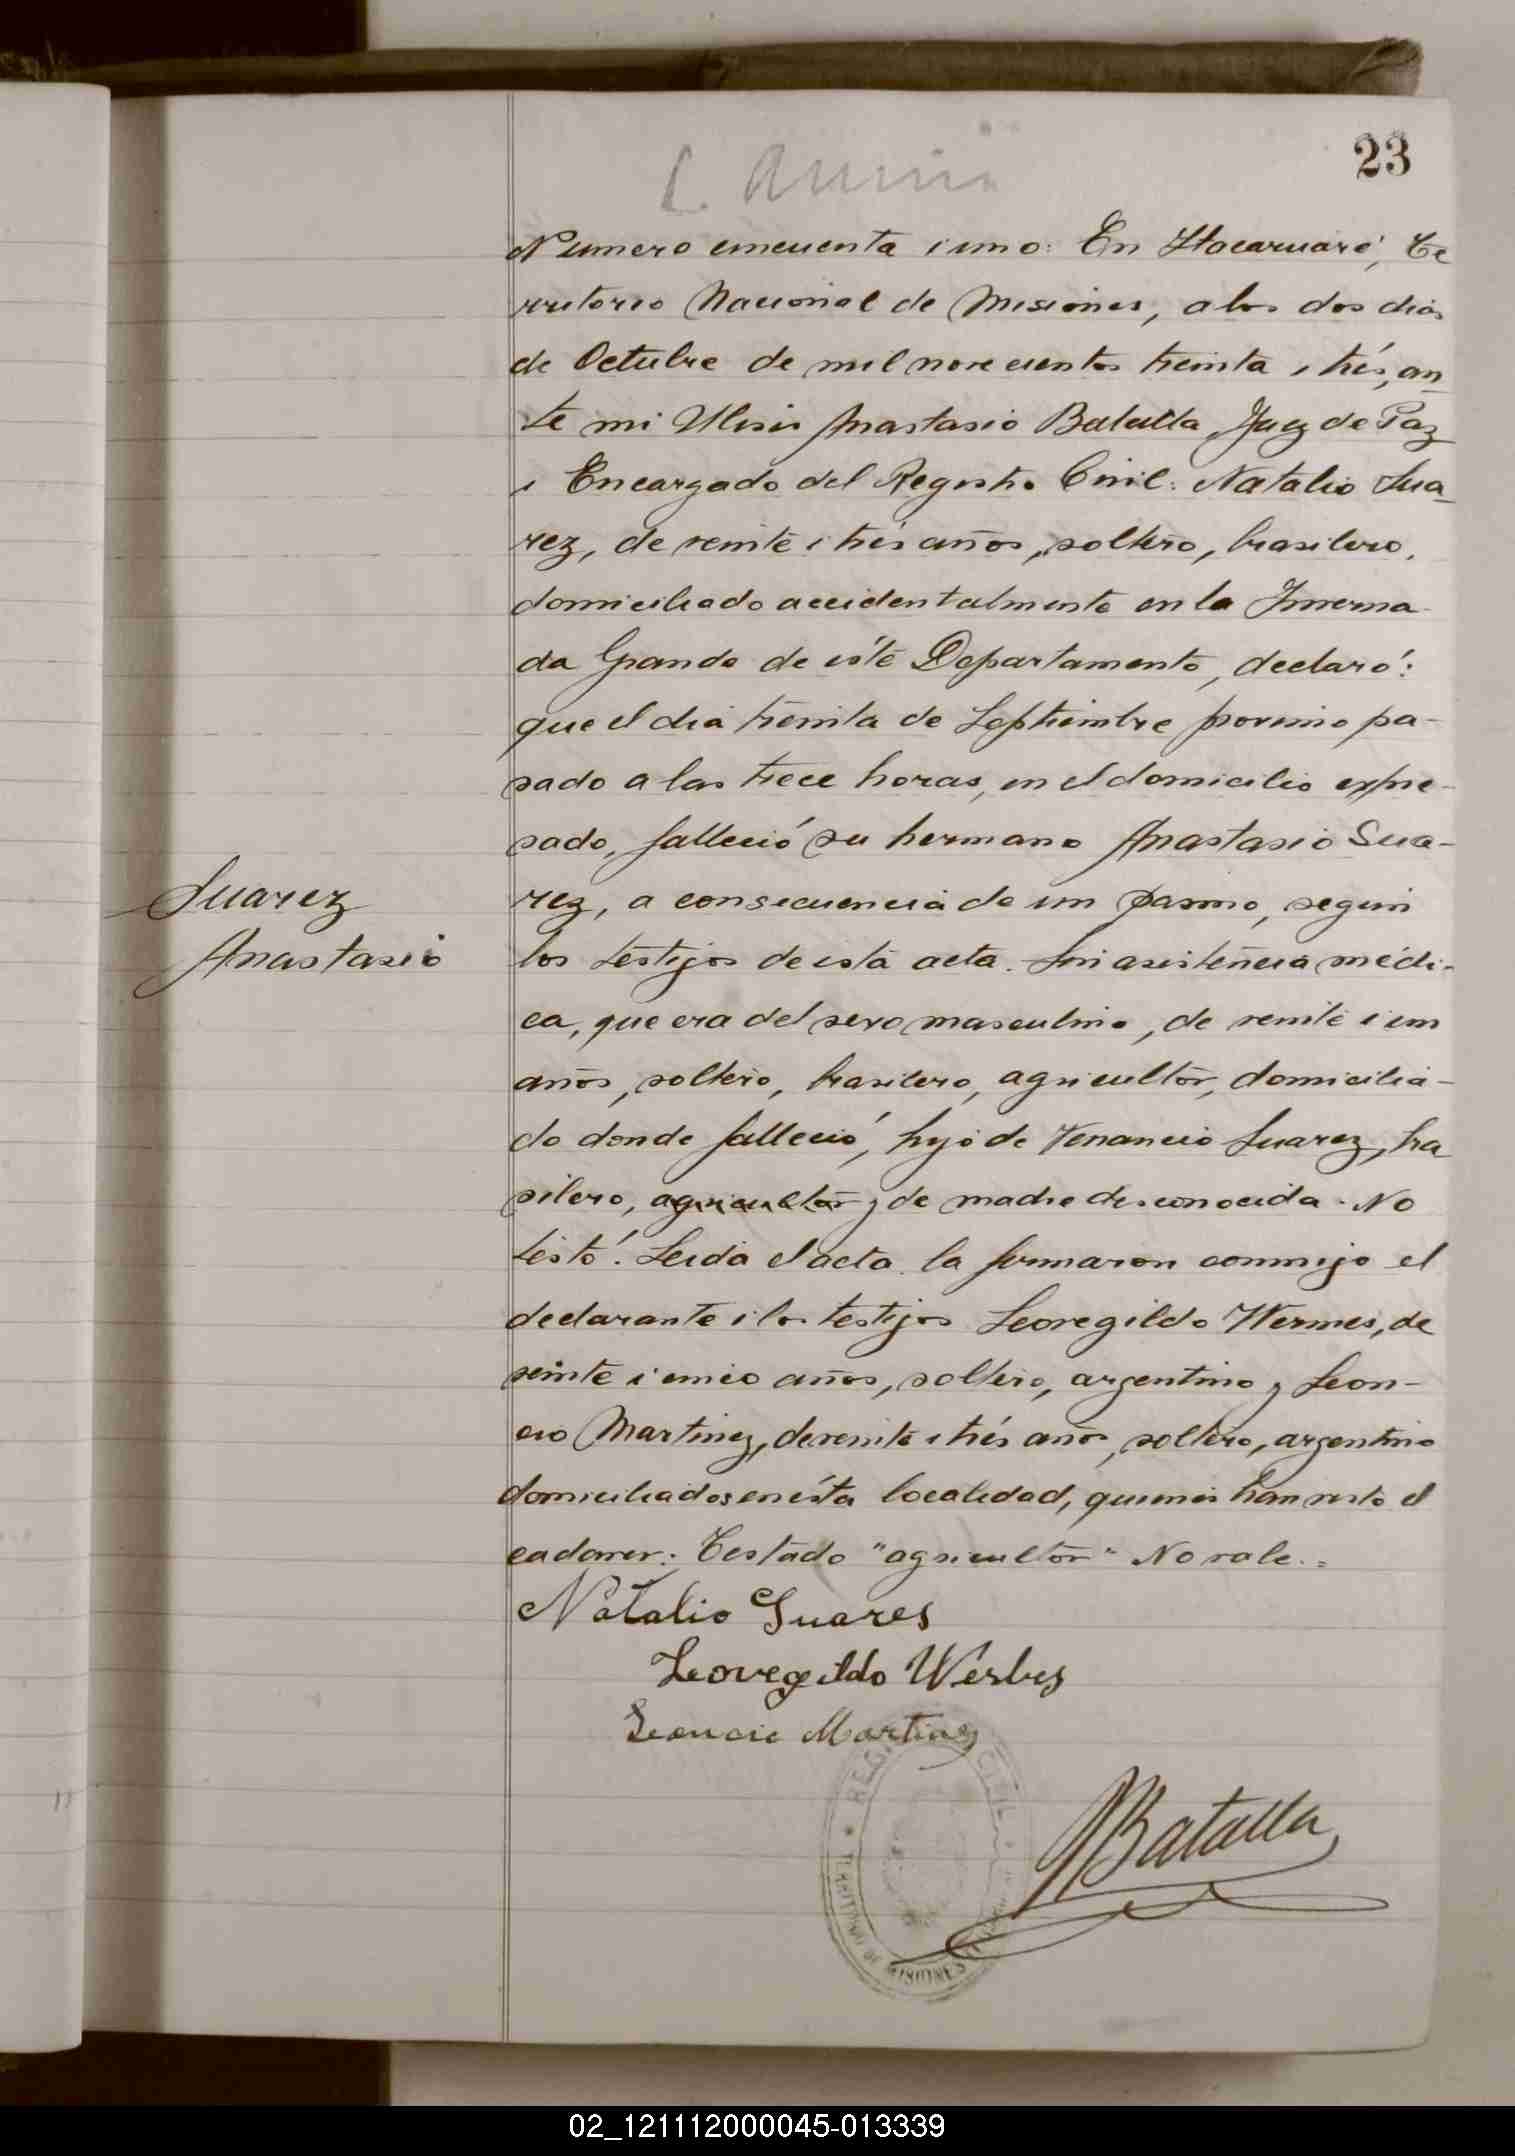 23
Numero cincuenta i uno: En Itacaruaré, Te
rritorio Nacional de Misiones, a los dos dias
de Octubre de mil novecientos treinta i trés, an
te mi Ulises Anastasio Batalla, Juez de Paz
i Encargado del Registro Civil: Natalio Sua
rez, de veinte i trés años, soltero, brasilero,
domiciliado accidentalmente en la Inverna-
da Grande de éste Departamento, declaró:
que el dia treinta de Septiembre proximo pa-
sado a las trece horas, en el domicilio expre-
sado, falleció su hermano Anastasio Sua-
Suarez
Anastasio
rez, a consecuencia de un pasmo, segun
los testijos de ésta acta. Sin asistencia médi-
ca, que era del sexo masculino, de veinte i un
años, soltero, brasilero, agricultor, domicilia-
do donde falleció, hijo de Venancio Suarez, bra
silero, agricultor y de madre desconocida. No
testó. Leida el acta la firmaron conmigo el
declarante i los testijos Leovegildo Wermes, de
veinte i cinco años, soltero, argentino y Leon-
cio Martinez, de veinte i trés años, soltero, argentino
domiciliados en ésta localidad, quienes han visto el
cadaver: Testado "agricultor" No vale.=
Natalio Suares
Leovegildo Werbes
Leoncio Martinez
REGISTRO CIVIL
TERRITORIO DE MISIONES
Batalla
02_121112000045-013339